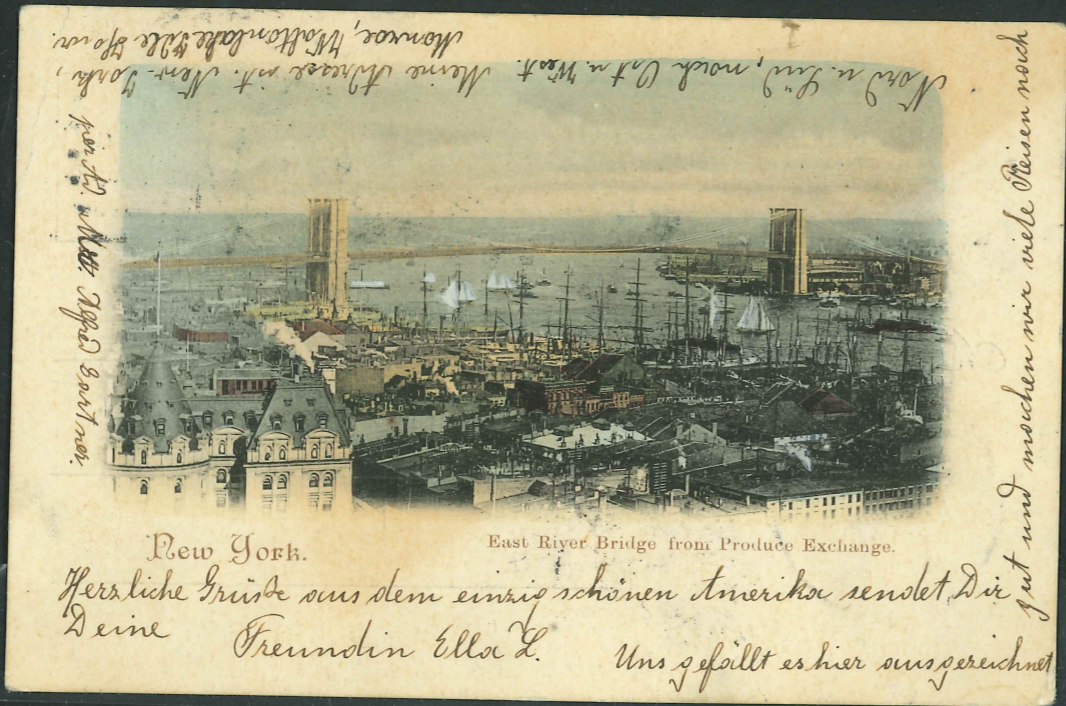 New York.
East River Bridge from Produce Exchange.
Herzliche Grüße aus dem einzig schönen Amerika sendet Dir
Deine Freundin Ella L.
Uns gefällt es hier ausgezeichnet
gut und machen wir viele Reisen nach
Nord u. Süd, nach Ost u. West.
Meine Adresse ist. New-York,
Monroe, Waltonlake
per Ad. Alfred